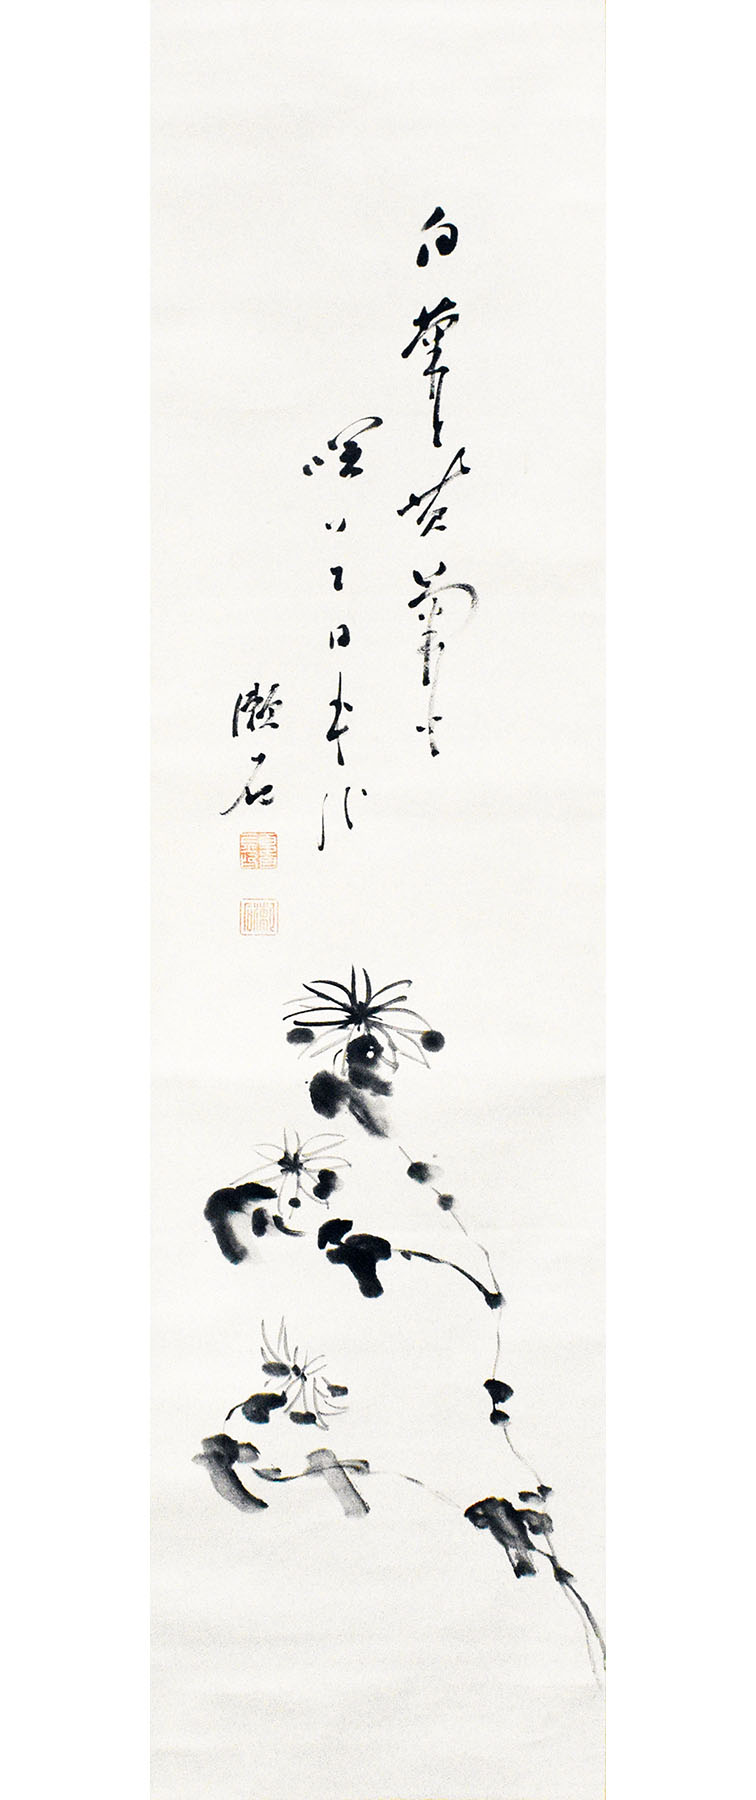 白菊と黄菊と
咲いて日本かな
漱石